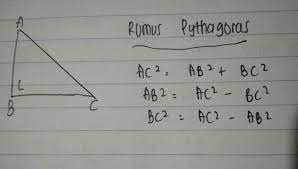 A
B
C
Rumus Pythagoras
AC² = AB² + BC²
AB² = AC² - BC²
BC² = AC² - AB²